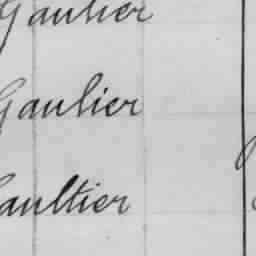 Gaulier
Gaulier
Gaultier